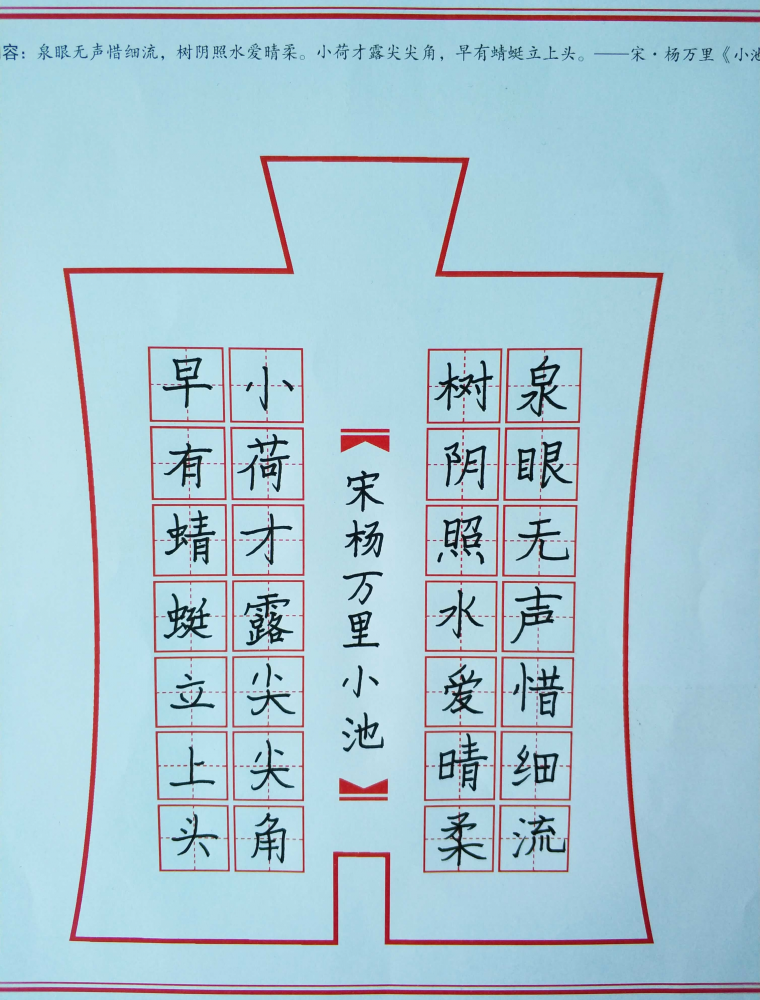 容：泉眼无声惜细流，树阴照水爱晴柔。小荷才露尖尖角，早有蜻蜓立上头。——宋·杨万里《小池
泉眼无声惜细流
树阴照水爱晴柔
宋杨万里小池
小荷才露尖尖角
早有蜻蜓立上头